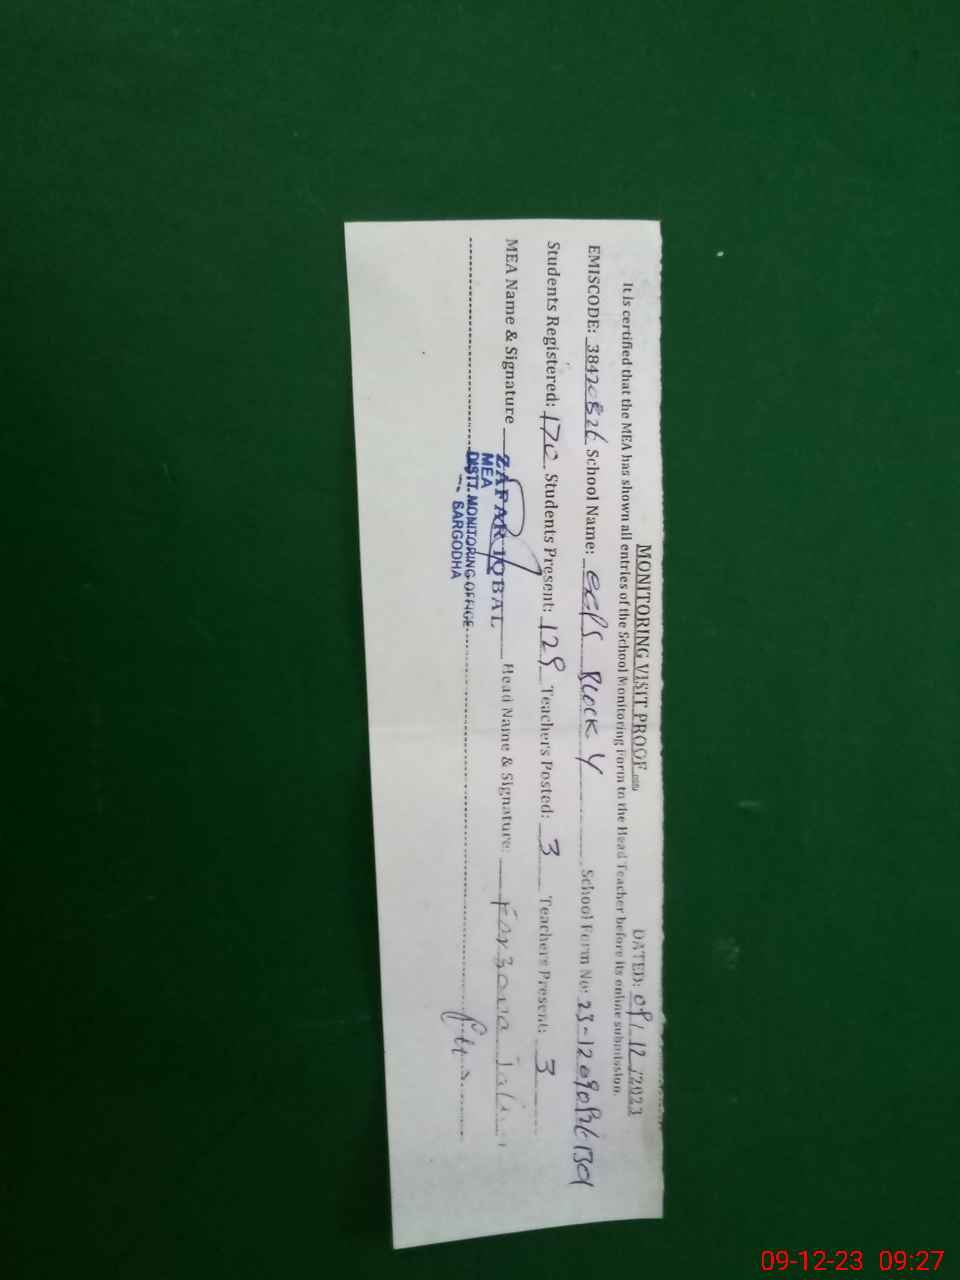 MONITORING VISIT PROOF DATED: 09/12/2023
It is certified that the MEA has shown all entries of the School Monitoring Form to the Head Teacher before its online submission.
EMISCODE: 38420826 School Name: GGPS Block Y School Form No: 23-
Students Registered: 170 Students Present: 129 Teachers Posted: 3 Teachers Present: 3
MEA Name & Signature ZAFAR IQBAL Head Name & Signature: Farzana
MEA
DISTT. MONITORING OFFICE
SARGODHA
09-12-23 09:27